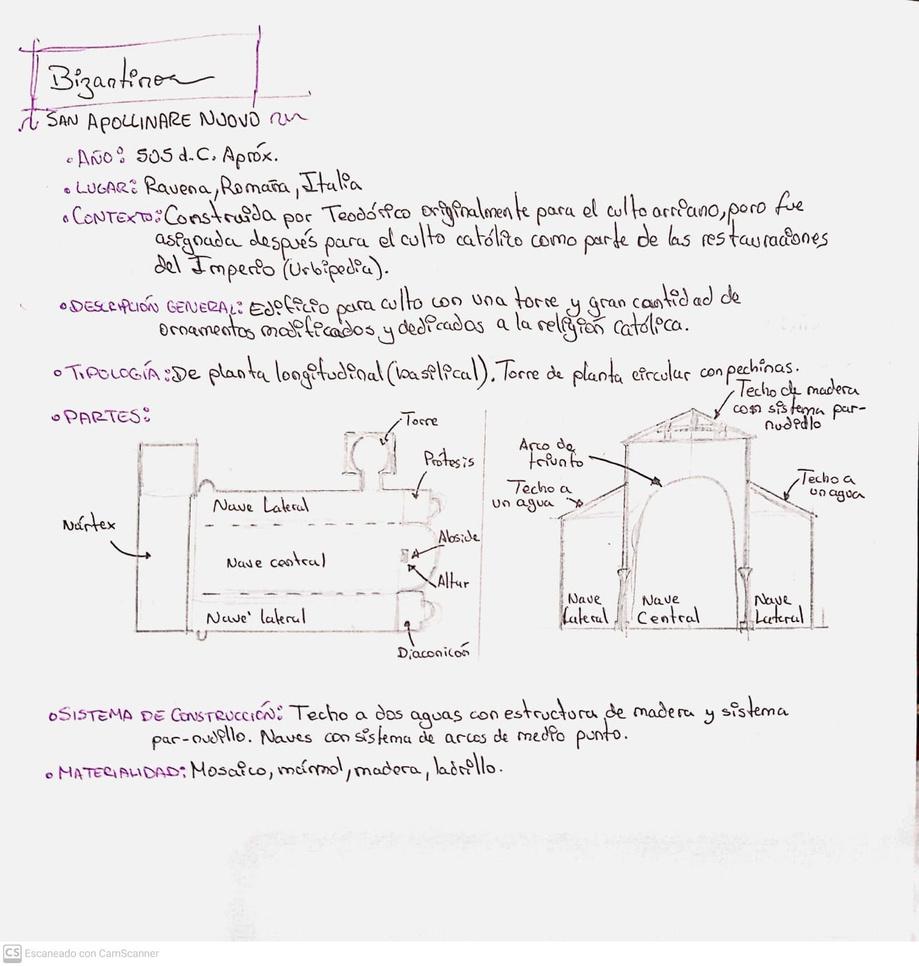 Bizantinoa
SAN APOLLINARE NUOVO
• AÑO: 505 d.C. Apróx.
• LUGAR: Ravena, Romaña, Italia
• CONTEXTO: Construida por Teodórico originalmente para el culto arriano, pero fue
asignada después para el culto católico como parte de las restauraciones
del Imperio (Urbipedia).
• DESCRIPCIÓN GENERAL: Edificio para culto con una torre y gran cantidad de
ornamentos modificados y dedicados a la religión católica.
• TIPOLOGÍA: De planta longitudinal (basilical). Torre de planta circular con pechinas.
• PARTES:
Torre
Prótesis
Nave Lateral
Nártex
Nave central
Abside
Altar
Nave lateral
Diaconicón
Techo de madera
con sistema par-
nudillo
Arco de
triunfo
Techo a
un agua
Techo a
un agua
Nave
Lateral
Nave
Central
Nave
Lateral
• SISTEMA DE CONSTRUCCIÓN: Techo a dos aguas con estructura de madera y sistema
par-nudillo. Naves con sistema de arcos de medio punto.
• MATERIALIDAD: Mosaico, mármol, madera, ladrillo.
CS Escaneado con CamScanner